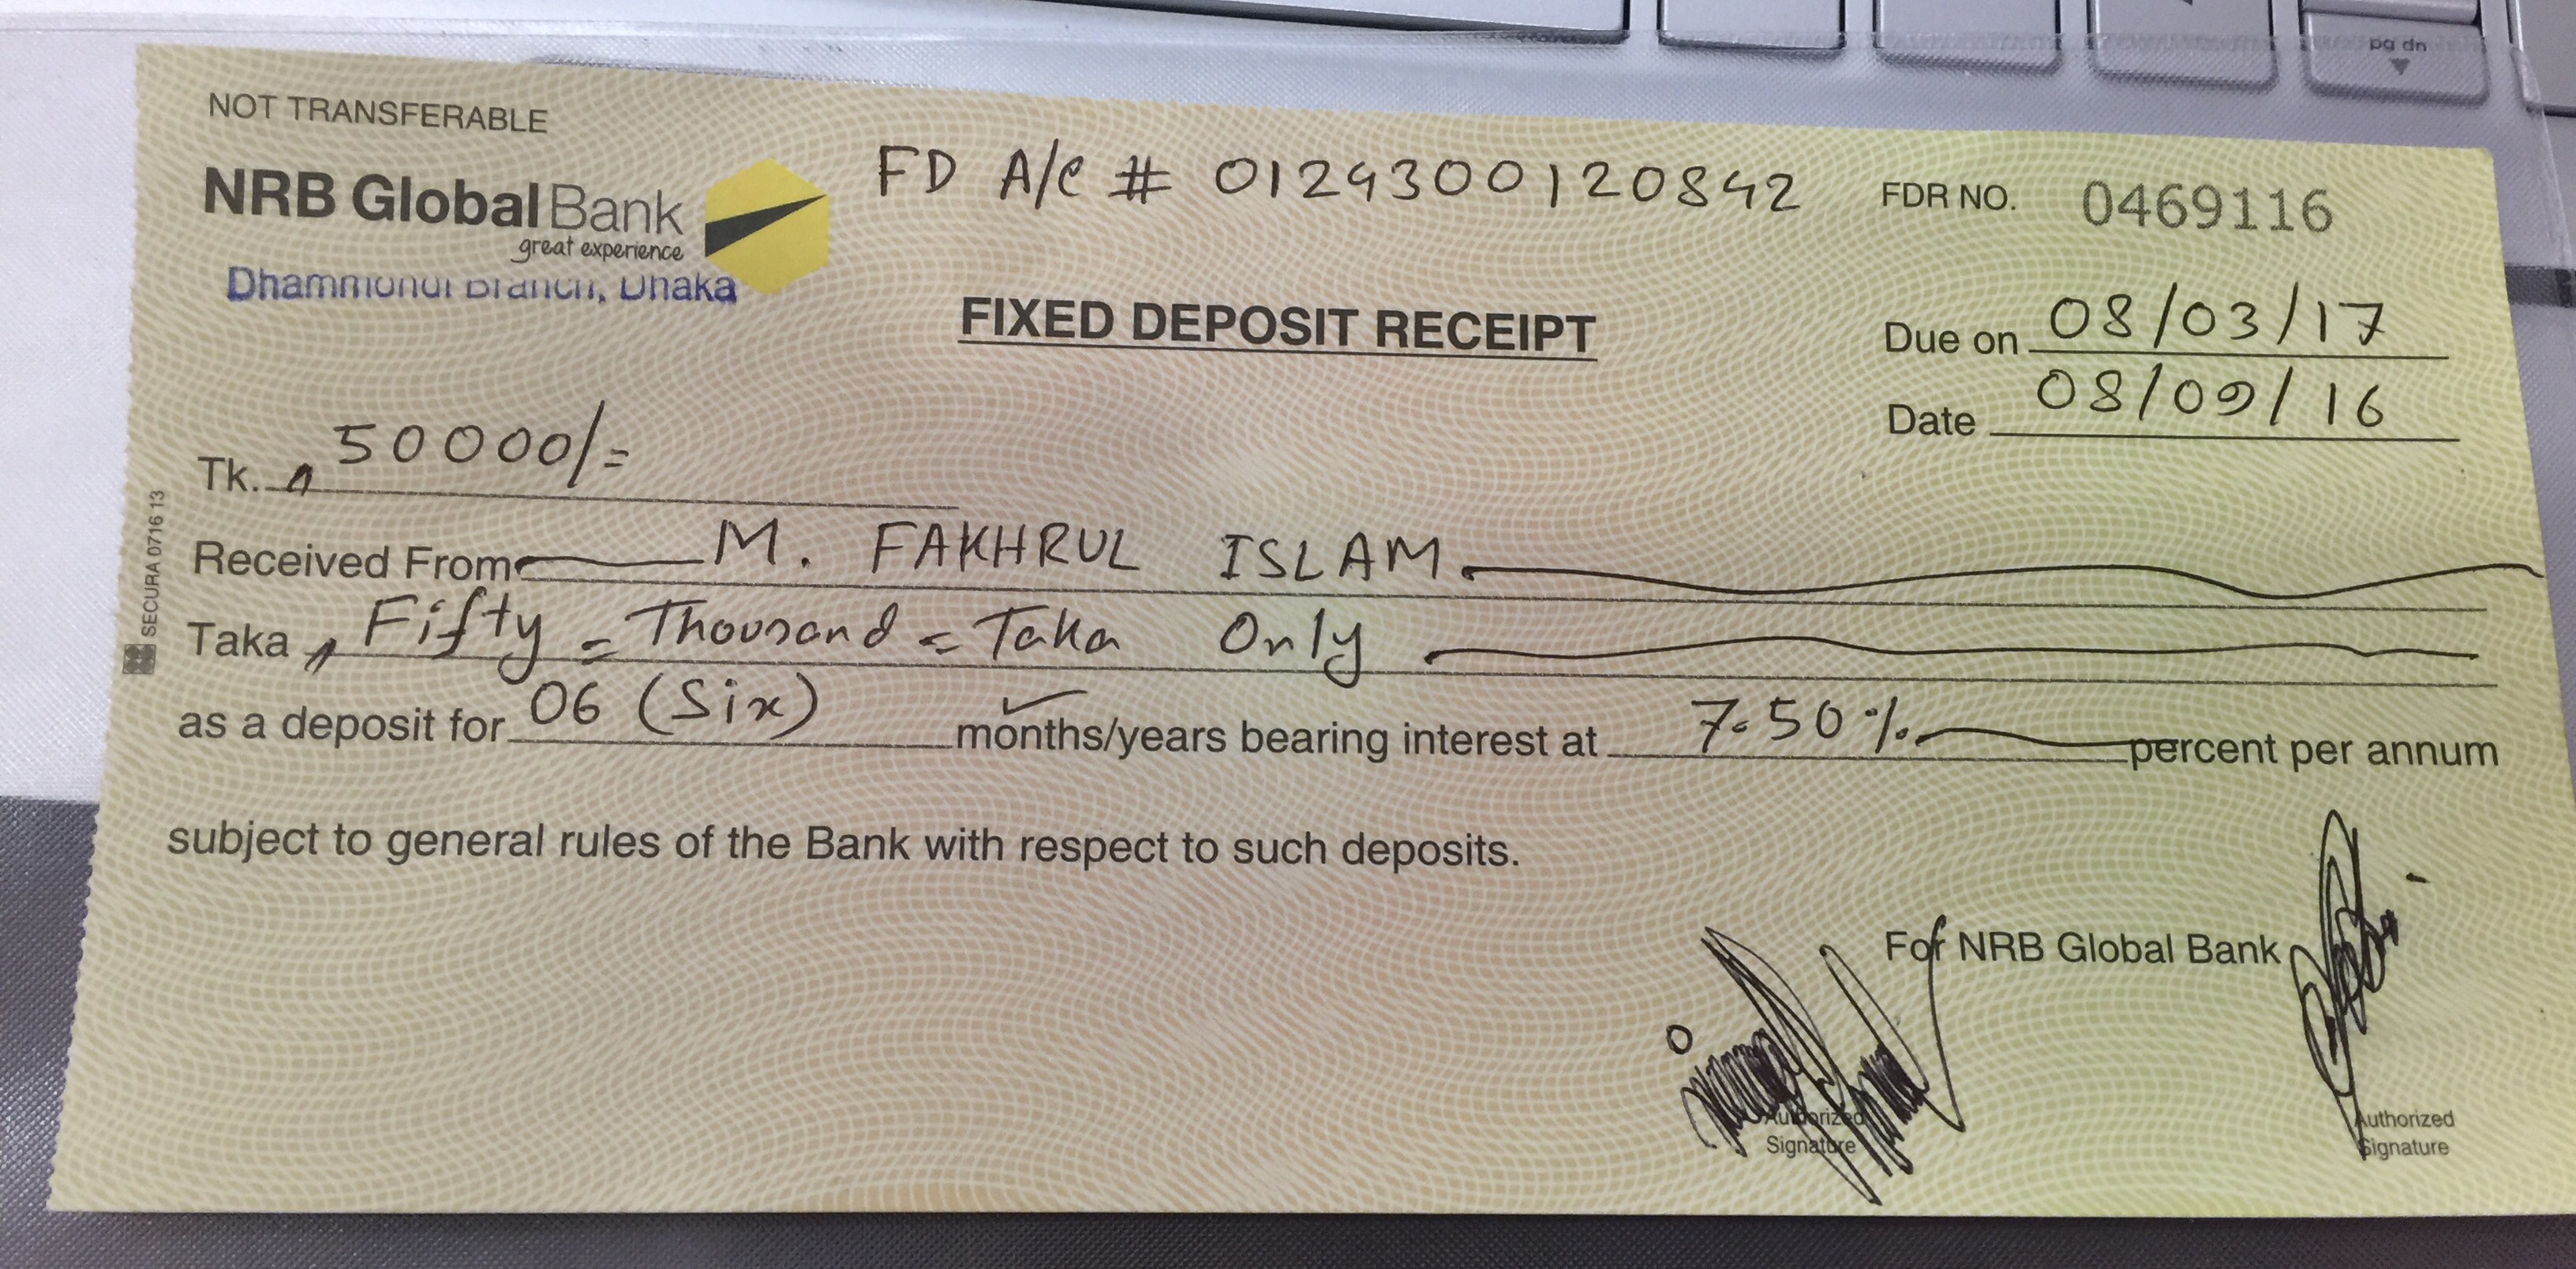 pg dn
NOT TRANSFERABLE
NRB Global Bank
great experience
Dhaka
FD A/C # 0124300120842
FDR NO. 0469116
FIXED DEPOSIT RECEIPT
Due on 08/03/17
Date 08/09/16
Tk. 50000/=
Received From M. FAKHRUL ISLAM.
Taka Fifty = Thousand = Taka Only
as a deposit for 06 (Six) months/years bearing interest at 7.50% percent per annum
subject to general rules of the Bank with respect to such deposits.
For NRB Global Bank
Authorized
Signature
Authorized
Signature
SECURA 0716 13